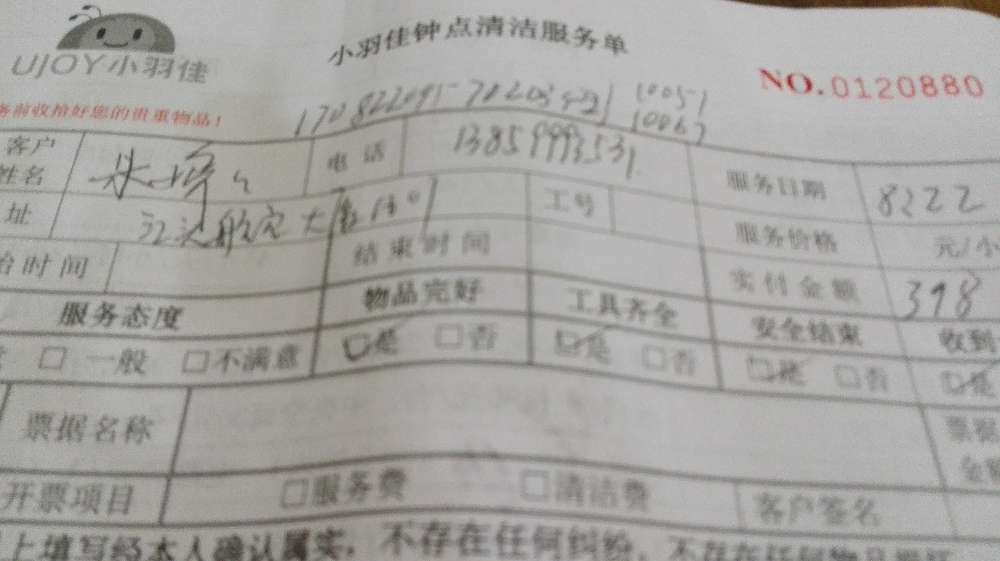 UJOY小羽佳
小羽佳钟点清洁服务单
NO.0120880
务前收拾好您的贵重物品！
10051
客户
姓名
电话 13859993531
服务日期 8222
址
工号
服务价格 元/小
时间 结束时间
实付金额 398
服务态度 物品完好 工具齐全 安全结束 收到
□ 一般 □不满意 □是 □否 □是 □否 □是 □否 □是
票据名称 票据
金额
开票项目 □服务费 □清洁费 客户签名
上填写经本人确认属实，不存在任何纠纷，不存在任何物品损坏